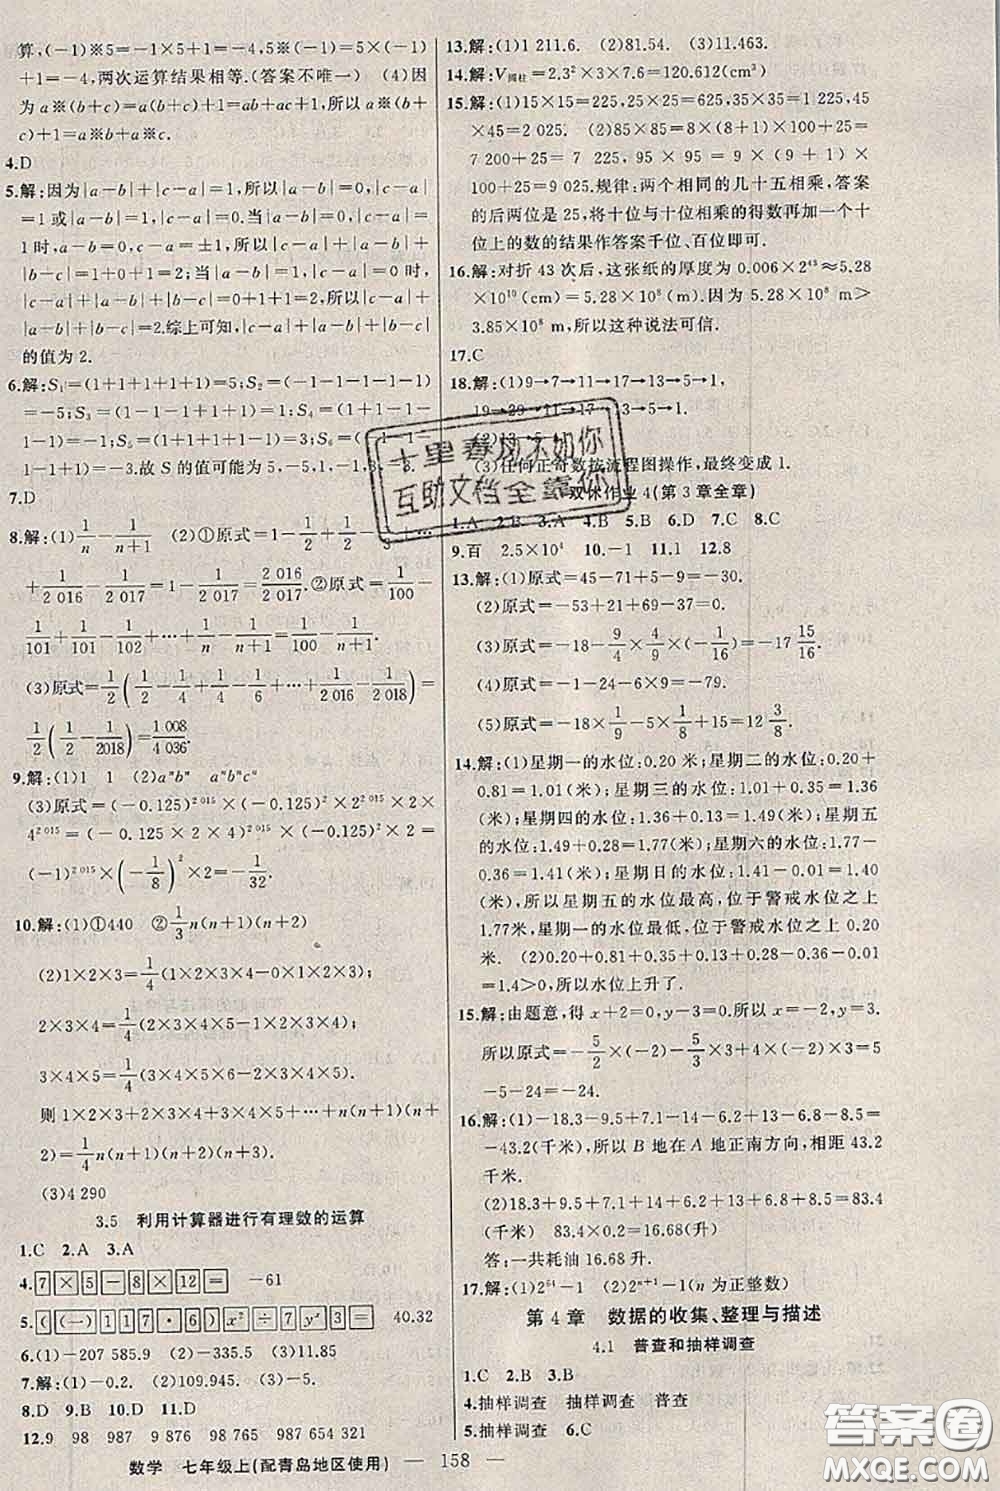 算,(-1)※5=-1×5+1=-4,5※(-1)=5×(-1)
+1=-4,两次运算结果相等.(答案不唯一) (4)因
为a※(b+c)=a(b+c)+1=ab+ac+1,所以a※(b+
c)+1=a※b+a※c.
4.D
5.解:因为|a-b|+|c-a|=1,所以|a-b|=0,|c-a|
=1或|a-b|=1,|c-a|=0.当|a-b|=0,|c-a|=
1时,a-b=0,c-a=±1,所以|c-a|+|a-b|+
|b-c|=1+0+1=2;当|a-b|=1,|c-a|=0时,
|c-a|+|a-b|+|b-c|=0+1+1=2,所以|c-a|+
|a-b|+|b-c|=2.综上可知,|c-a|+|a-b|+|b-c|
的值为2.
6.解:S₁=(1+1+1+1+1)=5;S₂=(-1-1-1-1-1)
=-5;S₃=(1-1-1+1+1)=1;S₄=(1+1-1-
1-1)=-1;S₅=(1+1+1+1-1)=3;S₆=(1-1-
1-1-1)=-3.故S的值可能为5,-5,1,-1,3,-3.
7.D
8.解:(1)1/n-1/(n+1) (2)①原式=1-1/2+1/2-1/3+…
+1/2 016-1/2 017=1-1/2 017=2 016/2 017.②原式=1/100-
1/101+1/101-1/102+…+1/n-1/(n+1)=1/100-1/(n+1).
(3)原式=1/2(1/2-1/4+1/4-1/6+…+1/2 016-1/2 018)=
1/2(1/2-1/2018)=1 008/4 036.
9.解:(1)1 1 (2)aⁿbⁿ aⁿbⁿcⁿ
(3)原式=(-0.125)^2 015×(-0.125)²×2^2 015×2×
4^2 015=(-0.125×2×4)^2 015×(-0.125)²×2=
(-1)^2 015×(-1/8)²×2=-1/32.
10.解:(1)①440 ②1/3n(n+1)(n+2)
(2)1×2×3=1/4(1×2×3×4-0×1×2×3);
2×3×4=1/4(2×3×4×5-1×2×3×4);
3×4×5=1/4(3×4×5×6-2×3×4×5).
则1×2×3+2×3×4+3×4×5+…+n(n+1)(n+
2)=1/4n(n+1)(n+2)(n+3).
(3)4 290
3.5 利用计算器进行有理数的运算
1.C 2.A 3.A
4.7×5-8×12= -61
5.((-)117·6)x²÷7y^x3= 40.32
6.(1)-207 585.9 (2)-335 (3)11.85
7.解:(1)-0.2. (2)109.945. (3)-5.
8.D 9.B 10.D 11.D
12.9 98 987 9 876 98 765 987 654 321
13.解:(1)1 211.6. (2)81.54. (3)11.463.
14.解:V圆柱=2.3²×3×7.6=120.612(cm³)
15.解:(1)15×15=225,25×25=625,35×35=1 225,45
×45=2 025. (2)85×85=8×(8+1)×100+25=
7 200+25=7 225,95×95=9×(9+1)×100+
25=9 025.规律:两个相同的几十五相乘,答案
的后两位是25,将十位与十位相乘的得数再加一个十
位上的数的结果作答案千位、百位即可.
16.解:对折43次后,这张纸的厚度为0.006×2⁴³≈5.28
×10¹⁰(cm)=5.28×10⁸(m).因为5.28×10⁸ m>
3.85×10⁸ m,所以这种说法可信.
17.C
18.解:(1)9→7→11→17→13→5→1,
19→29→11→17→13→5→1.
(3)任何正奇数按流程图操作,最终变成1.
双休作业4(第3章全章)
1.A 2.B 3.A 4.B 5.B 6.D 7.C 8.C
9.百 2.5×10⁴ 10.-1 11.1 12.8
13.解:(1)原式=45-71+5-9=-30.
(2)原式=-53+21+69-37=0.
(3)原式=-18-9/4×4/9×(-1/16)=-17 15/16.
(4)原式=-1-24-6×9=-79.
(5)原式=-18×1/9-5×1/8+15=12 3/8.
14.解:(1)星期一的水位:0.20米;星期二的水位:0.20+
0.81=1.01(米);星期三的水位:1.01+0.35=1.36
(米);星期四的水位:1.36+0.13=1.49(米);星期五
的水位:1.49+0.28=1.77(米);星期六的水位:1.77-
0.36=1.41(米);星期天的水位:1.41-0.01=
1.40(米),所以星期五的水位最高,位于警戒水位之上
1.77米,星期一的水位最低,位于警戒水位之上0.20
米. (2)0.20+0.81+0.35+0.13+0.28-0.36-0.01=
1.4>0,所以水位上升了.
15.解:由题意,得x+2=0,y-3=0,所以x=-2,y=3.
所以原式=-5/2×(-2)-5/3×3+4×(-2)×3=5
-5-24=-24.
16.解:(1)-18.3-9.5+7.1-14-6.2+13-6.8-8.5=
-43.2(千米),所以B地在A地正南方向,相距43.2
千米.
(2)18.3+9.5+7.1+14+6.2+13+6.8+8.5=83.4
(千米) 83.4×0.2=16.68(升)
答:一共耗油16.68升.
17.解:(1)2⁶⁴-1 (2)2ⁿ⁺¹-1(n为正整数)
第4章 数据的收集、整理与描述
4.1 普查和抽样调查
1.C 2.B 3.B
4.抽样调查 抽样调查 普查
5.抽样调查 6.C
数学 七年级上(配青岛地区使用) — 158 —
十里春风不如你
互助文档全靠你
答案圈
MXQE.COM